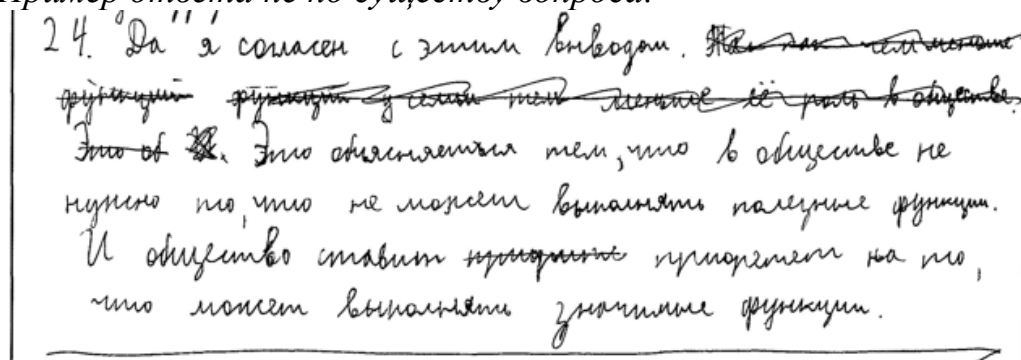 Пример ответа не по существу вопроса.
24. "Да" я согласен с этим выводом. Так как чем меньше
функций функций у семьи тем меньше её роль в обществе.
Это об Это объясняеться тем, что в обществе не
нужно то, что не может выполнять полезные функции.
И общество ставит приоретет на то,
что может выполнять значимые функции.